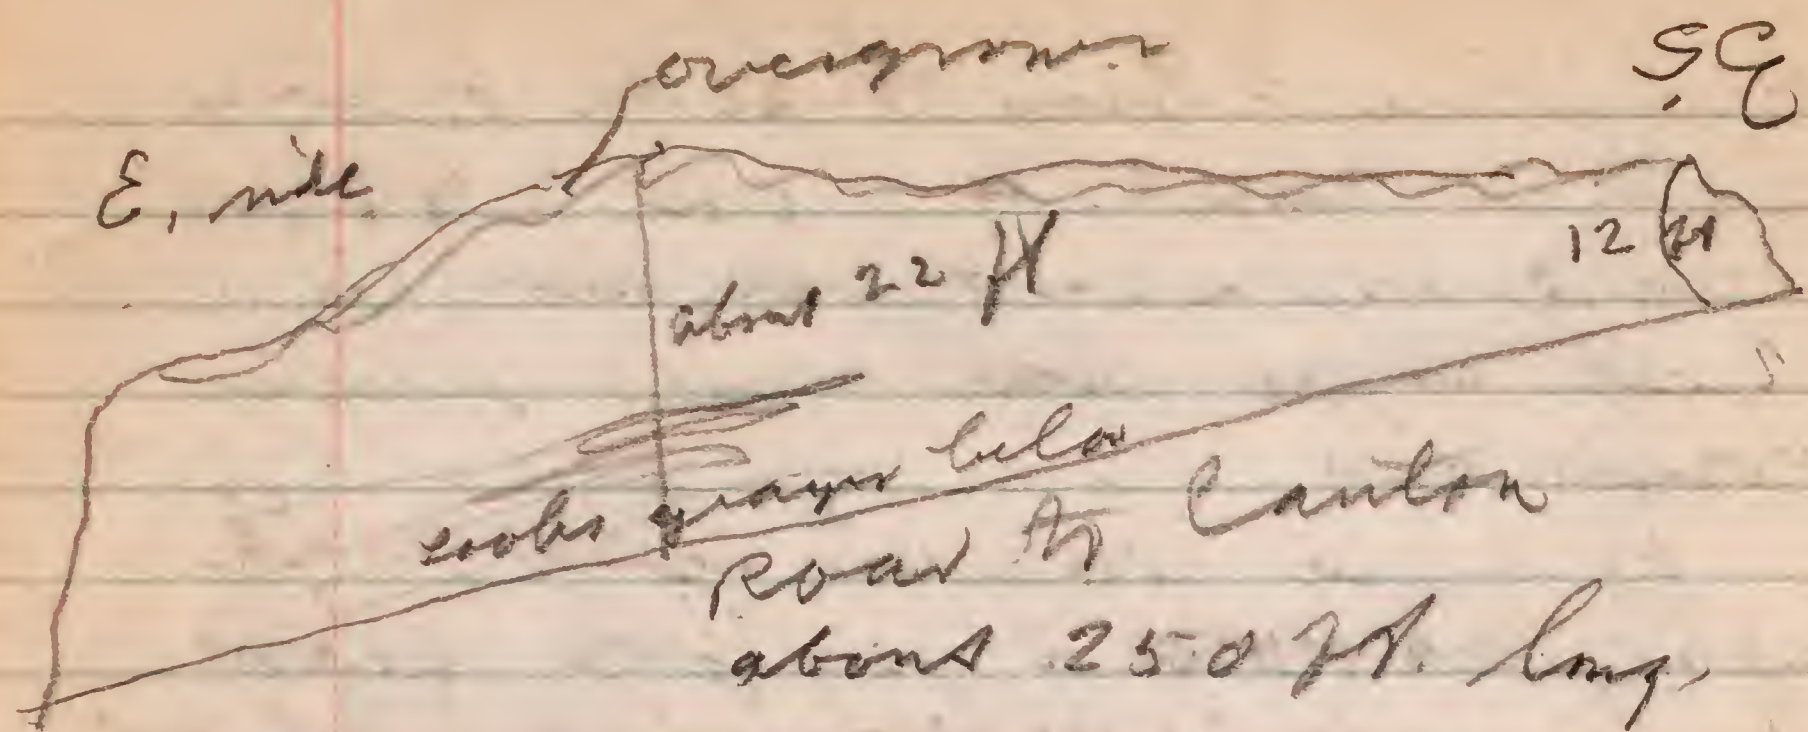 overgrown
E. side
about 22 ft
12 ft
looks grayer below
Road to Canton
about 250 ft. long.